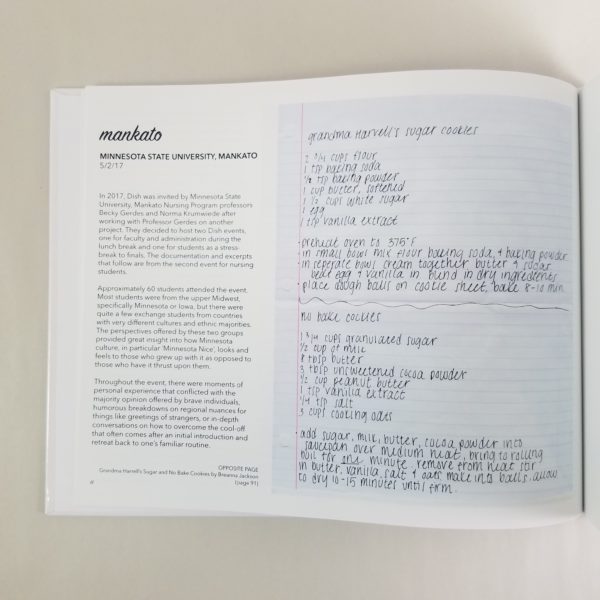 mankato
MINNESOTA STATE UNIVERSITY, MANKATO
5/2/17
In 2017, Dish was invited by Minnesota State
University, Mankato Nursing Program professors
Becky Gerdes and Norma Krumwiede after
working with Professor Gerdes on another
project. They decided to host two Dish events,
one for faculty and administration during the
lunch break and one for students as a stress
break to finals. The documentation and excerpts
that follow are from the second event for nursing
students.
Approximately 60 students attended the event.
Most students were from the upper Midwest,
specifically Minnesota or Iowa, but there were
quite a few exchange students from countries
with very different cultures and ethnic majorities.
The perspectives offered by these two groups
provided great insight into how Minnesota
culture, in particular 'Minnesota Nice', looks and
feels to those who grew up with it as opposed to
those who have it thrust upon them.
Throughout the event, there were moments of
personal experience that conflicted with the
majority opinion offered by brave individuals,
humorous breakdowns on regional nuances for
things like greetings of strangers, or in-depth
conversations on how to overcome the cool-off
that often comes after an initial introduction and
retreat back to one's familiar routine.
OPPOSITE PAGE
Grandma Harvell's Sugar and No Bake Cookies by Breanna Jackson
(page 91)
grandma Harvell's sugar cookies
2 3/4 cups flour
1 tsp baking soda
1/2 tsp baking powder
1 cup butter, softened
1 1/2 cups white sugar
1 egg
1 tsp vanilla extract
· preheat oven to 375°F
· in small bowl mix flour baking soda, & baking powder
· in seperate bowls cream together butter & sugar
beat egg & vanilla in. Blend in dry ingredients
· place dough balls on cookie sheet, bake 8-10 min
no bake cookies
1 3/4 cups granulated sugar
1/2 cup of milk
8 tbsp butter
3 tbsp unsweetened cocoa powder
1/2 cup peanut butter
1 tsp vanilla extract
1/4 tsp salt
3 cups cooking oats
· add sugar, milk, butter, cocoa powder into
saucepan over medium heat, bring to rolling
boil for one minute. remove from heat stir
in butter, vanilla, salt & oats. make into balls. allow
to dry 10-15 minutes until firm.